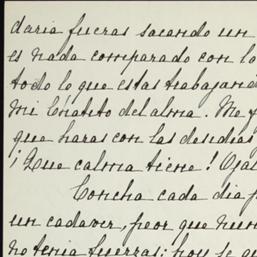 daria fueras sacando un
es nada comparado con lo
todo lo que estas trabajan
Mi Chatito del alma. Me f
que haras con las desidias
¡Que calma tiene! Ojal
Concha cada dia p
un cadaver, peor que nun
no tenia fuerzas; hoy se qu